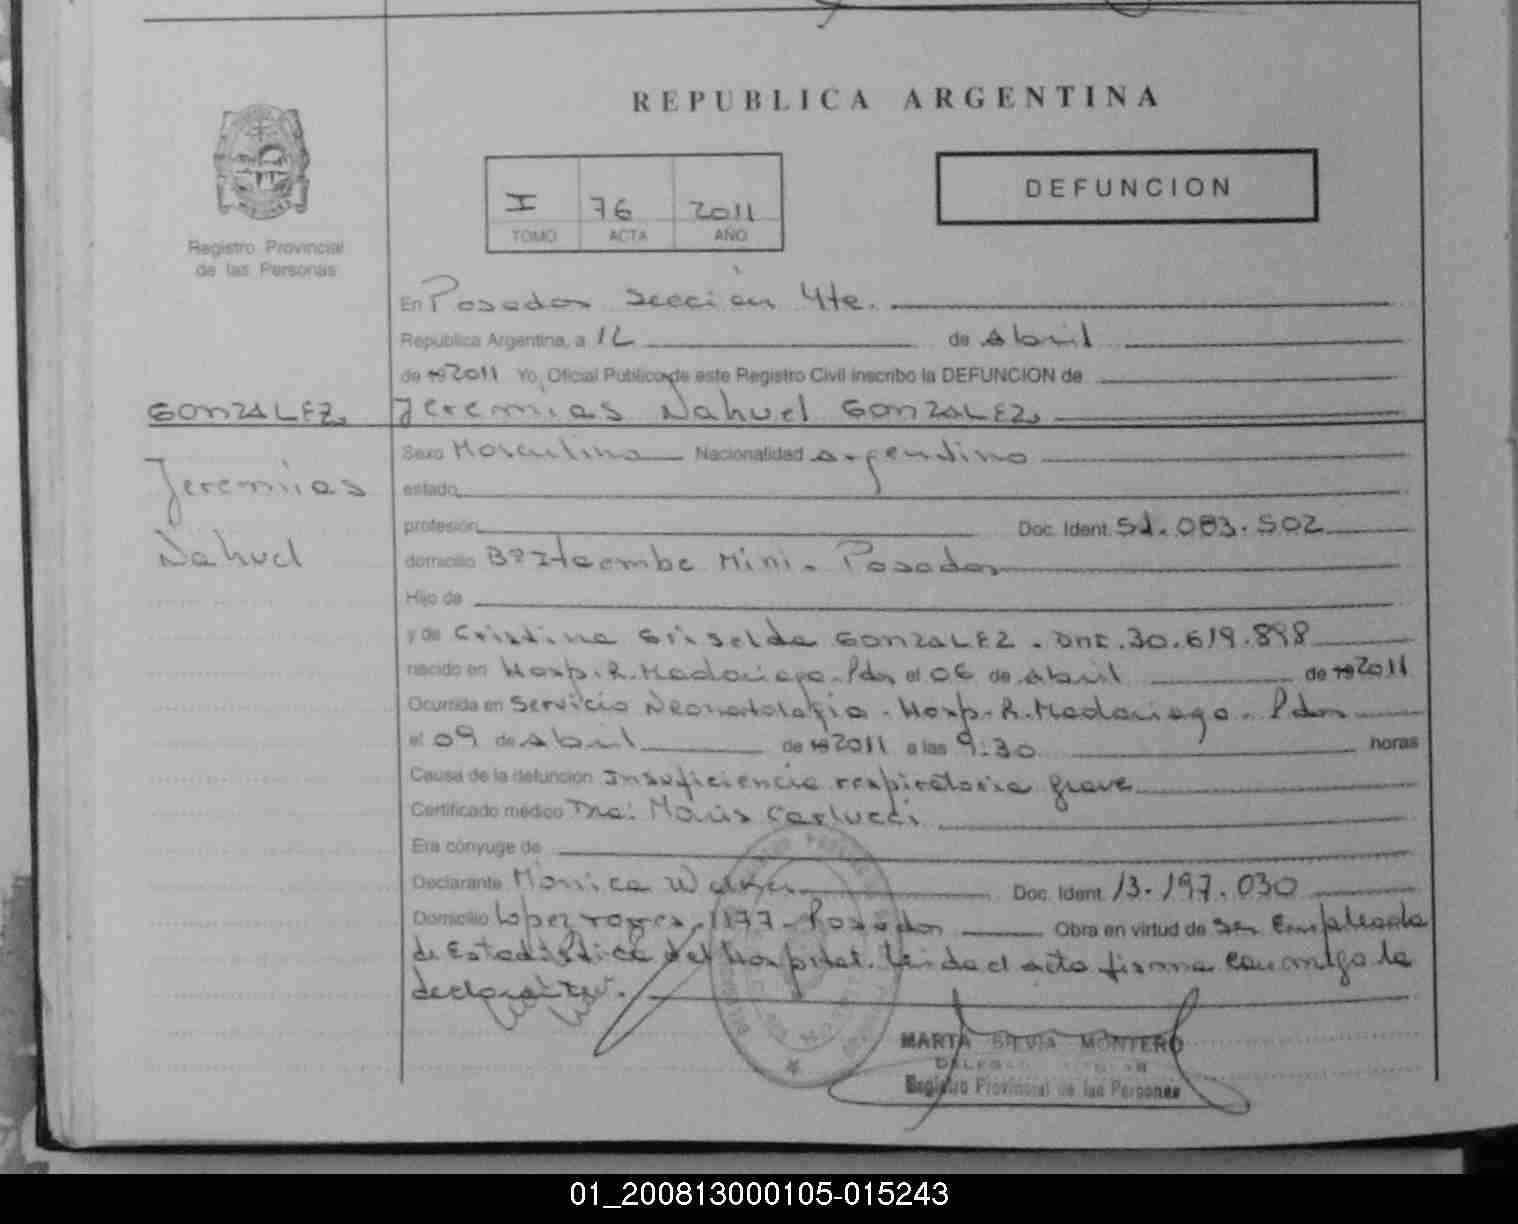 REPUBLICA ARGENTINA
DEFUNCION
I 76 2011
TOMO ACTA AÑO
Registro Provincial
de las Personas
En Posadas Sección 4ta.
República Argentina, a 12 de Abril
de 19 2011 Yo, Oficial Público de este Registro Civil inscribo la DEFUNCION de
GONZALEZ, Jeremias Nahuel GONZALEZ,
Sexo Masculino Nacionalidad argentino
Jeremias
estado
profesión Doc. Ident. 51.083.502
Nahuel
domicilio Bº Itaembe Mini - Posadas
Hijo de
y de Cristina Griselda GONZALEZ - DNI. 30.619.898
nacido en Hosp. R. Madariaga - Pdas el 06 de Abril de 19 2011
Ocurrida en Servicio Neonatología - Hosp. R. Madariaga - Pdas
el 09 de Abril de 19 2011 a las 9:30 horas
Causa de la defunción Insuficiencia respiratoria grave
Certificado médico Dra: Carlucci
Era cónyuge de
Declarante Mónica Doc. Ident. 13.197.030
Domicilio Lopez Torres 1177 - Posadas Obra en virtud de Ser Empleada
de Estadística del Hospital. Leida el acta firma conmigo la
declarante.
MARTA SILVIA MONTERO
Registro Provincial de las Personas
01_200813000105-015243